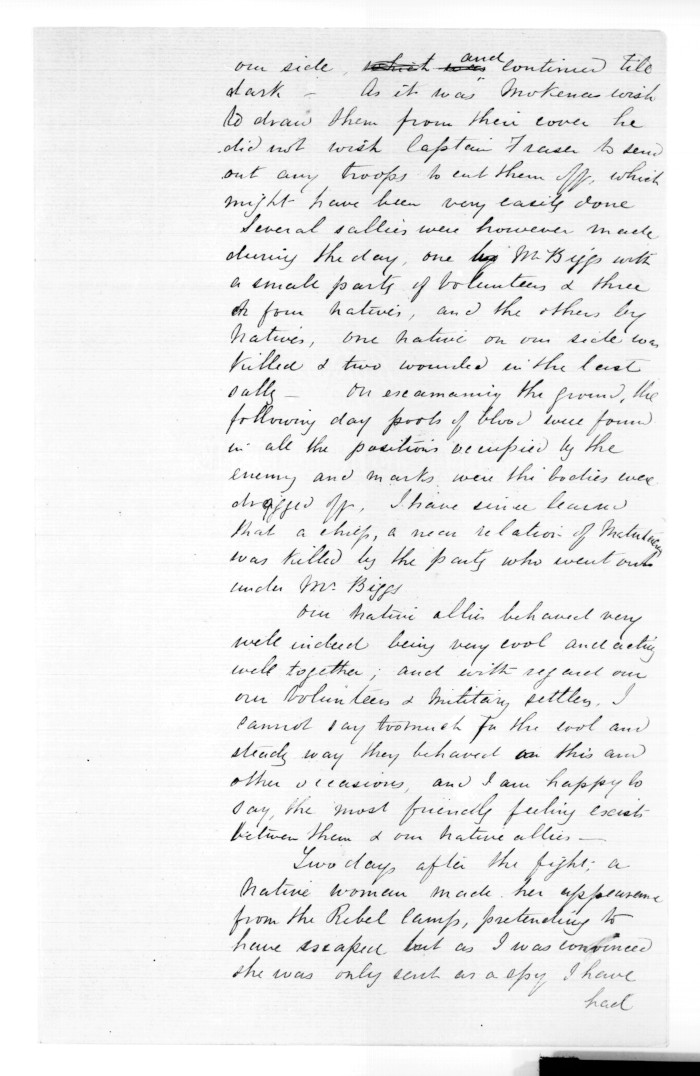 our side, which was and continued till
dark – As it was Mokenas wish
to draw them from their cover he
did not wish Captain Fraser to send
out any troops to cut them off, which
might have been very easily done
Several sallies were however made
during the day, one by Mr Biggs with
a small party of Volunteers & three
or four natives, and the others by
Natives, one native on our side was
killed & two wounded in the last
sally – On escamaning the ground, the
following day pools of blood were found
in all the positions occupied by the
enemy and marks were the bodies were
dragged off, I have since learned
that a chief, a near relation of
was killed by the party who went out
under Mr Biggs
Our Native allies behaved very
well indeed being very cool and acting
well together; and with regard our
our Volunteers & Military settlers. I
cannot say toomuch for the cool and
steady way they behaved on this and
other occasions, and I am happy to
say, the most friendly feeling exists
between them & our native allies –
Two days after the fight, a
Native woman made her appearance
from the Rebel Camp, pretending to
have escaped but as I was convinced
she was only sent as a spy I have
had